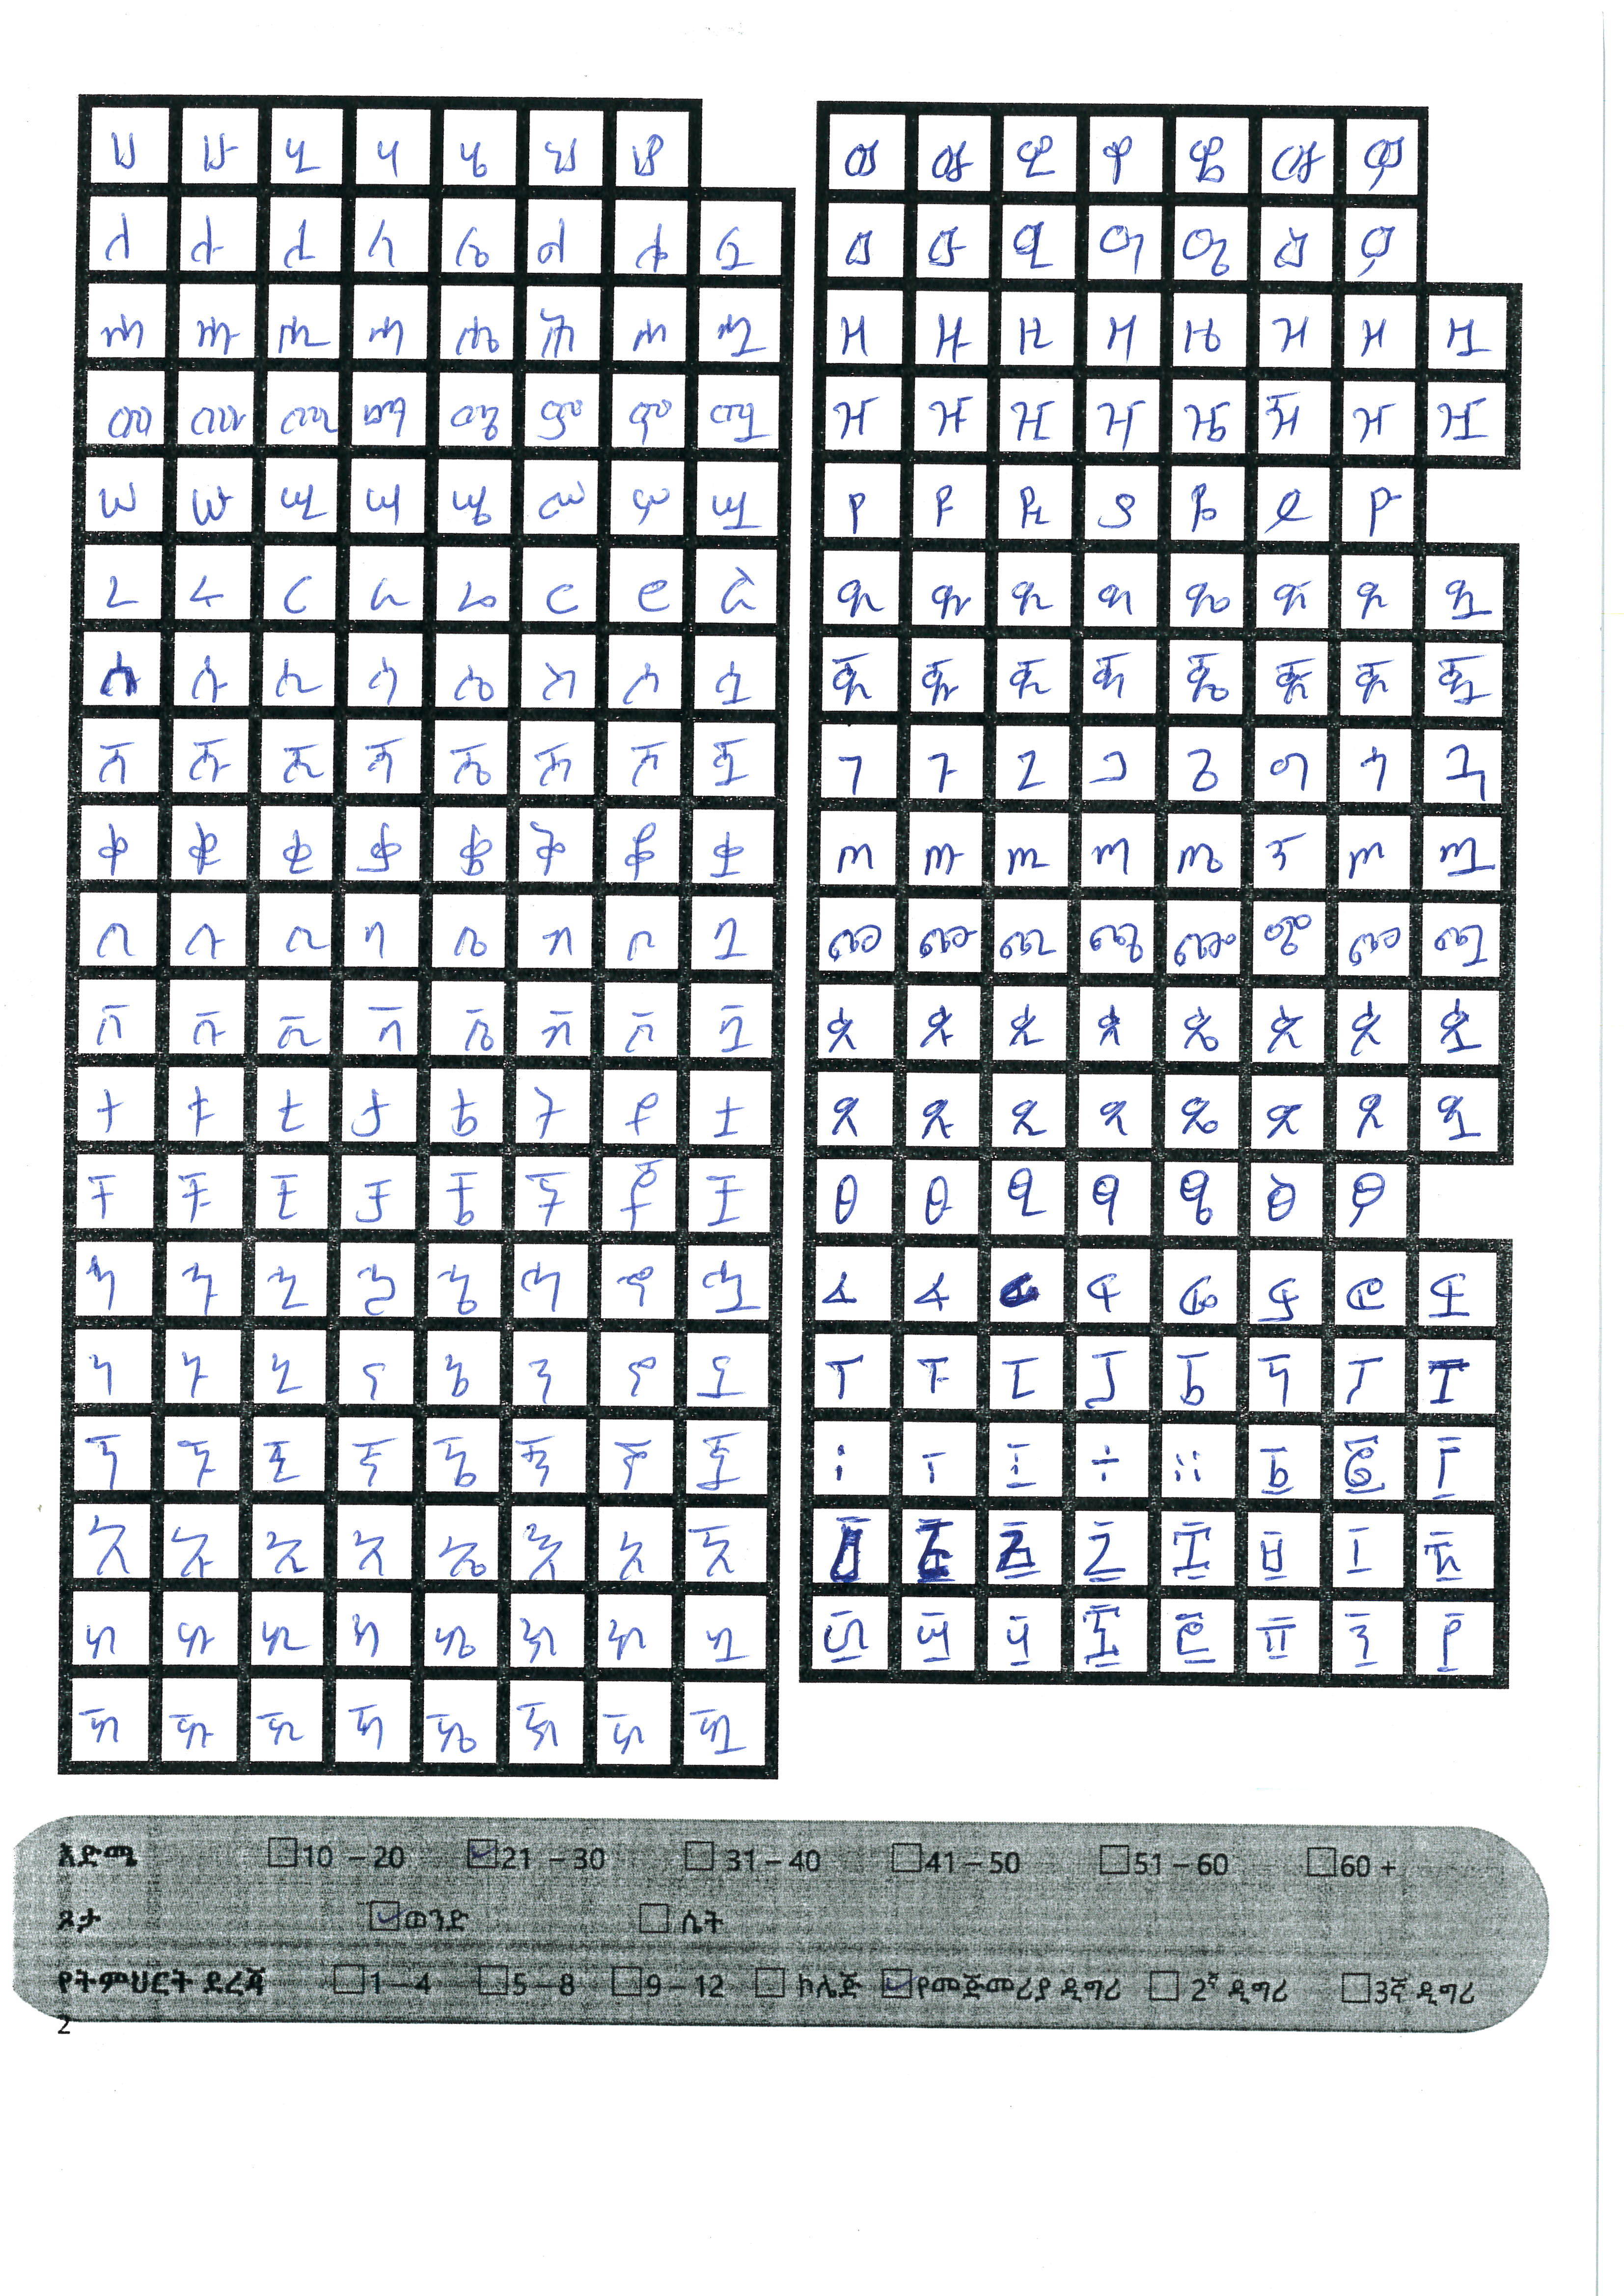 ሀ ሁ ሂ ሃ ሄ ህ ሆ
ለ ሉ ሊ ላ ሌ ል ሎ ሏ
ሐ ሑ ሒ ሓ ሔ ሕ ሖ ሗ
መ ሙ ሚ ማ ሜ ም ሞ ሟ
ሠ ሡ ሢ ሣ ሤ ሥ ሦ ሧ
ረ ሩ ሪ ራ ሬ ር ሮ ሯ
ሰ ሱ ሲ ሳ ሴ ስ ሶ ሷ
ሸ ሹ ሺ ሻ ሼ ሽ ሾ ሿ
ቀ ቁ ቂ ቃ ቄ ቅ ቆ ቋ
በ ቡ ቢ ባ ቤ ብ ቦ ቧ
ቨ ቩ ቪ ቫ ቬ ቭ ቮ ቯ
ተ ቱ ቲ ታ ቴ ት ቶ ቷ
ቸ ቹ ቺ ቻ ቼ ች ቾ ቿ
ኀ ኁ ኂ ኃ ኄ ኅ ኆ ኋ
ነ ኑ ኒ ና ኔ ን ኖ ኗ
ኘ ኙ ኚ ኛ ኜ ኝ ኞ ኟ
አ ኡ ኢ ኣ ኤ እ ኦ ኧ
ከ ኩ ኪ ካ ኬ ክ ኮ ኳ
ኸ ኹ ኺ ኻ ኼ ኽ ኾ ዃ
ወ ዉ ዊ ዋ ዌ ው ዎ
ዐ ዑ ዒ ዓ ዔ ዕ ዖ
ዘ ዙ ዚ ዛ ዜ ዝ ዞ ዟ
ዠ ዡ ዢ ዣ ዤ ዥ ዦ ዧ
የ ዩ ዪ ያ ዬ ይ ዮ
ደ ዱ ዲ ዳ ዴ ድ ዶ ዷ
ጀ ጁ ጂ ጃ ጄ ጅ ጆ ጇ
ገ ጉ ጊ ጋ ጌ ግ ጎ ጓ
ጠ ጡ ጢ ጣ ጤ ጥ ጦ ጧ
ጨ ጩ ጪ ጫ ጬ ጭ ጮ ጯ
ጰ ጱ ጲ ጳ ጴ ጵ ጶ ጷ
ጸ ጹ ጺ ጻ ጼ ጽ ጾ ጿ
ፀ ፁ ፂ ፃ ፄ ፅ ፆ
ፈ ፉ ፊ ፋ ፌ ፍ ፎ ፏ
ፐ ፑ ፒ ፓ ፔ ፕ ፖ ፗ
፡ ፣ ፤ ፥ ። ፩ ፪ ፫
፬ ፭ ፮ ፯ ፰ ፱ ፲ ፳
፴ ፵ ፶ ፷ ፸ ፹ ፺ ፻
እድሜ 10 – 20 21 – 30 31 – 40 41 – 50 51 – 60 60 +
ጾታ ወንድ ሴት
የትምህርት ደረጃ 1 – 4 5 – 8 9 – 12 ኮሌጅ የመጀመሪያ ዲግሪ 2ኛ ዲግሪ 3ኛ ዲግሪ
2